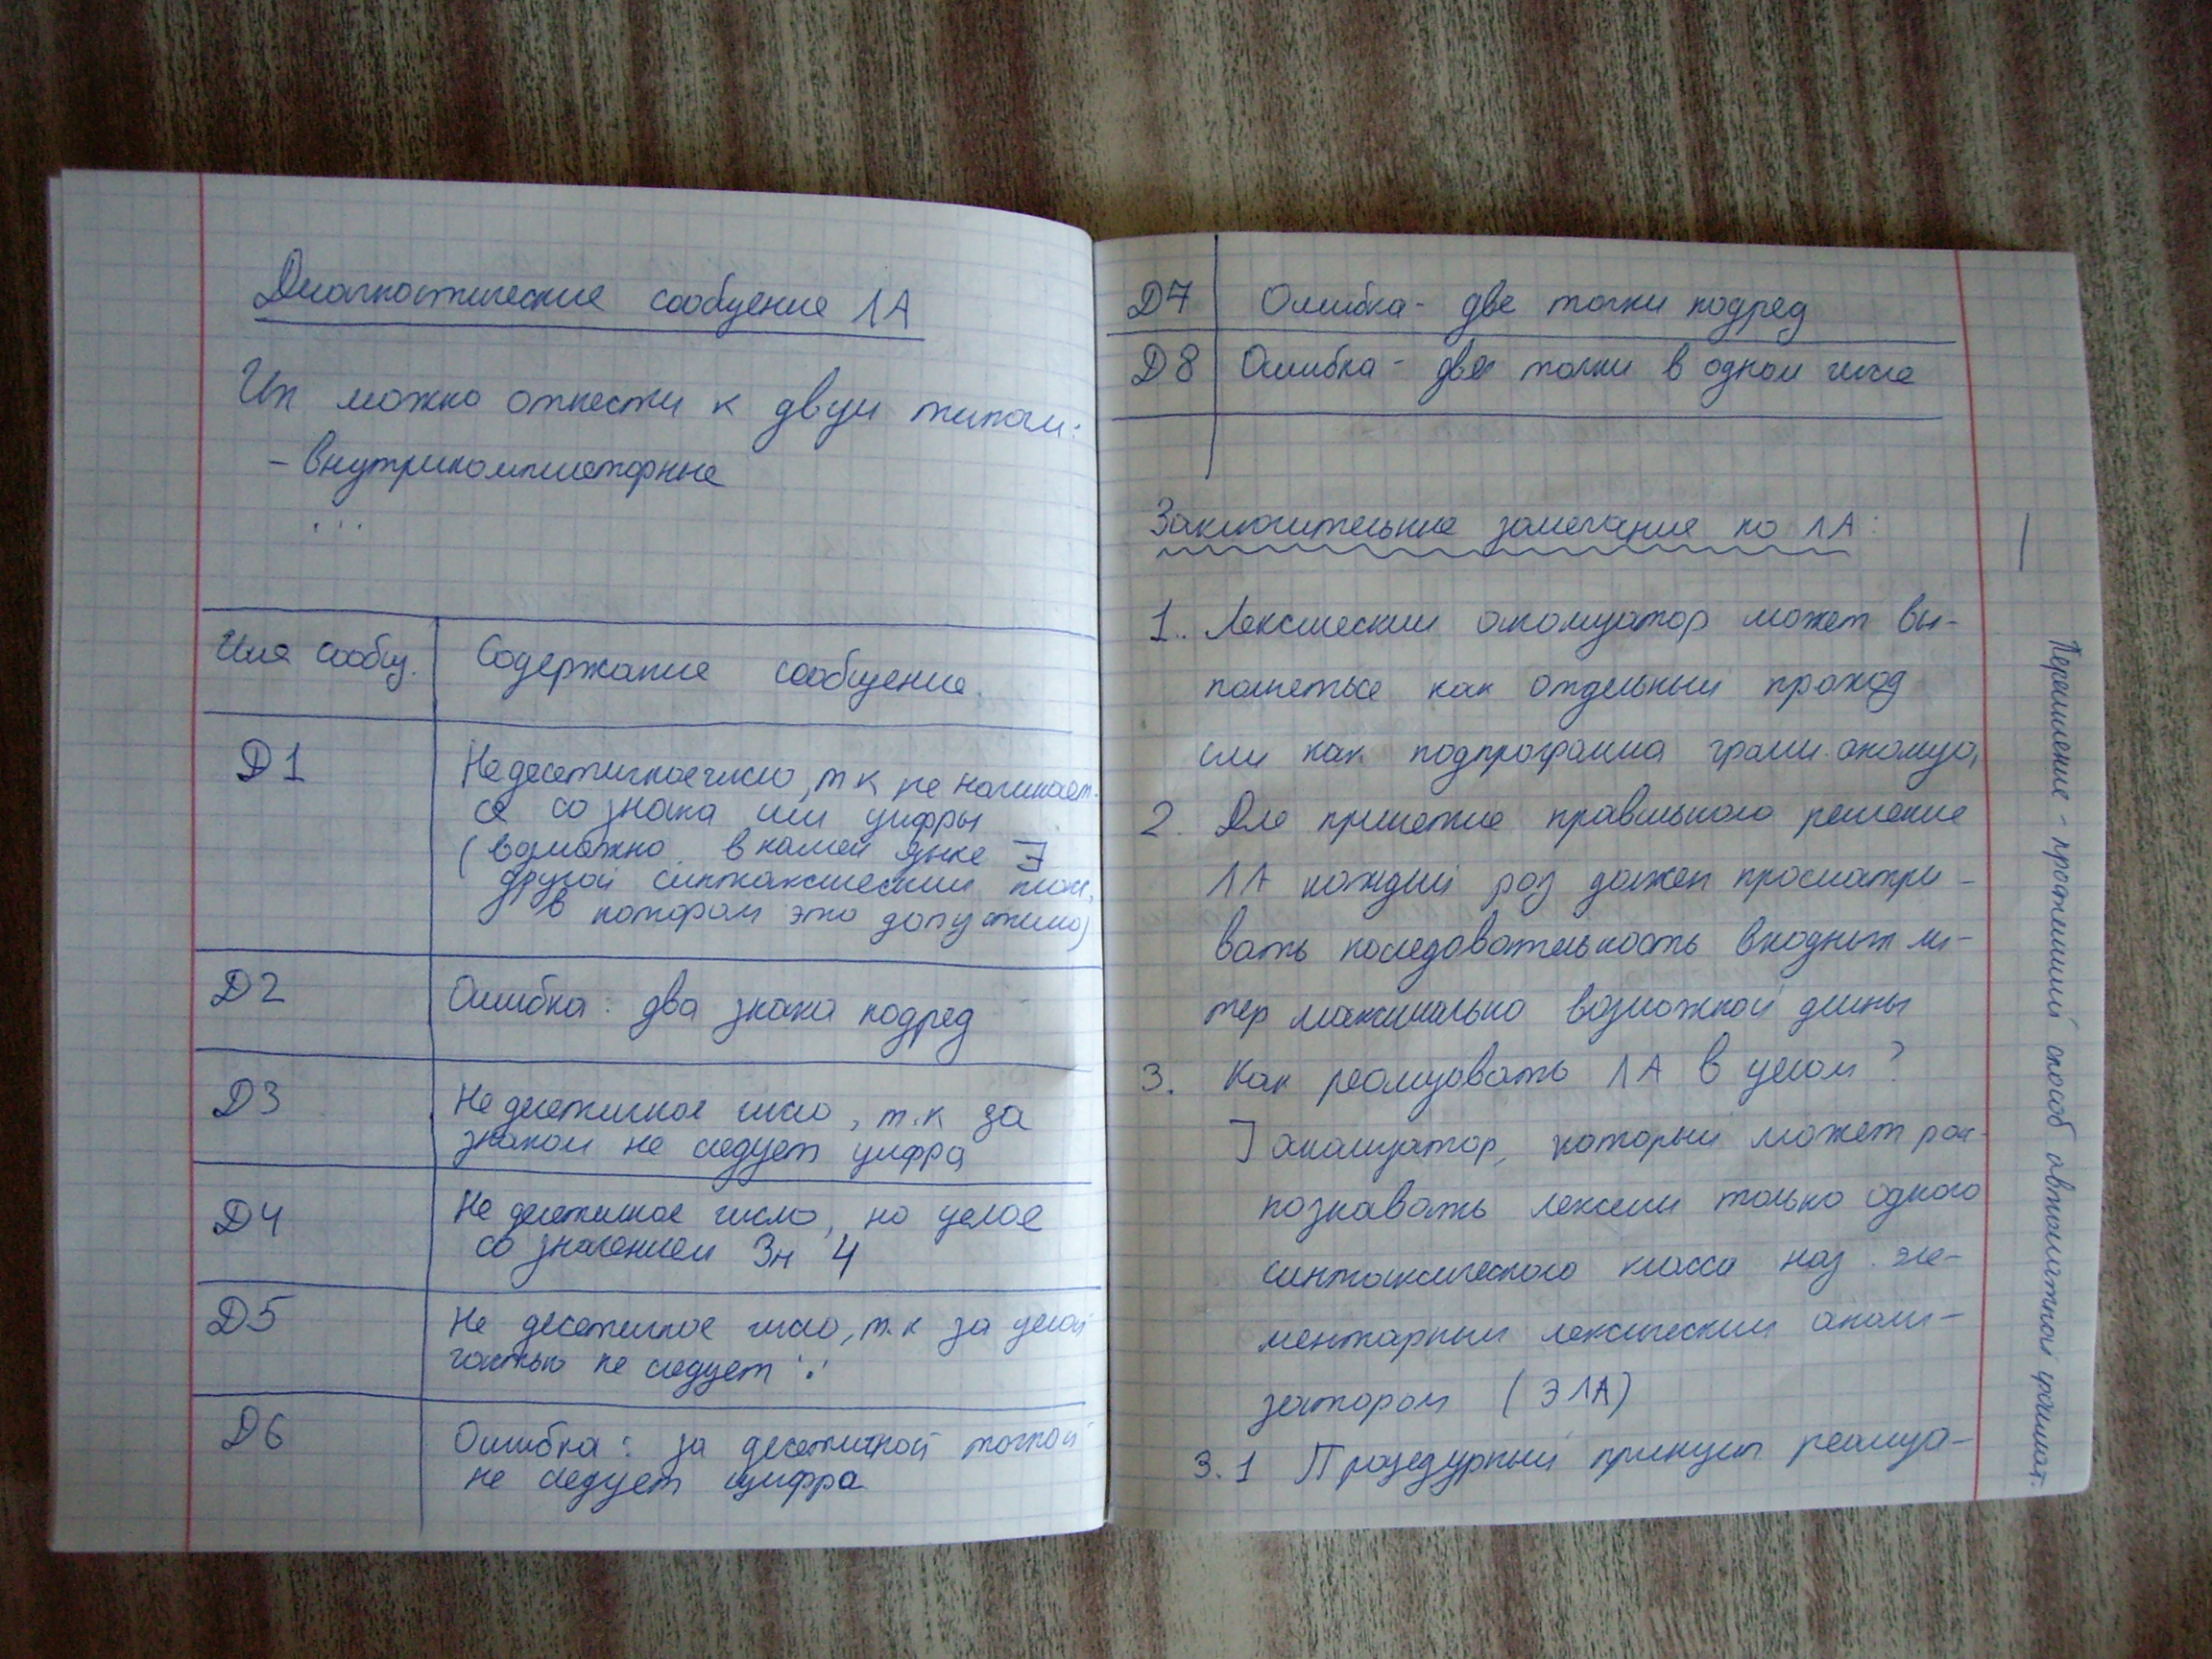 Диагностические сообщения ЛА
Их можно отнести к двум типам:
- внутрикомпиляторные
...
Имя сообщ. Содержание сообщения
D1 Не десятичное число, т к не начинает-
ся со знака или цифры
(возможно в нашем языке ∃
другой синтаксический класс,
в котором это допустимо)
D2 Ошибка: два знака подряд
D3 Не десятичное число, т.к за
знаком не следует цифра
D4 Не десятичное число, но целое
со значением Зн Ч
D5 Не десятичное число, т.к за целой
частью не следует '.'
D6 Ошибка: за десятичной точкой
не следует цифра
D7 Ошибка - две точки подряд
D8 Ошибка - две точки в одном числе
Заключительные замечания по ЛА:
1. Лексический анализатор может вы-
полняться как отдельный проход
или как подпрограмма грамм. анализа,
2. Для принятия правильного решения
ЛА каждый раз должен просматри-
вать последовательность входных ли-
тер максимально возможной длины
3. Как реализовать ЛА в целом?
] анализатор, который может рас-
познавать лексемы только одного
синтаксического класса наз. эле-
ментарным лексическим анали-
затором (ЭЛА)
3.1 Процедурный принцип реализа-
Перечисление - простейший способ автоматной граммат.